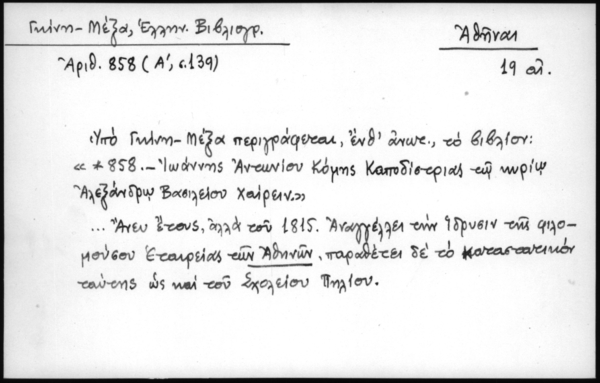 Γκίνη-Μέξα, Ἑλλην. Βιβλιογρ.
Ἀθῆναι
Ἀριθ. 858 (Α', σ.139)
19 αἰ.
Ὑπὸ Γκίνη-Μέξα περιγράφεται, ἔνθ' ἀνωτ., τὸ βιβλίον:
« *858.- Ἰωάννης Ἀντωνίου Κόμης Καποδίστριας τῷ κυρίῳ
Ἀλεξάνδρῳ Βασιλείου Χαίρειν.»
... Ἄνευ ἔτους, ἀλλὰ τοῦ 1815. Ἀναγγέλλει τὴν ἵδρυσιν τῆς φιλο-
μούσου Ἑταιρείας τῶν Ἀθηνῶν, παραθέτει δὲ τὸ καταστατικὸν
ταύτης ὡς καὶ τοῦ Σχολείου Πηλίου.